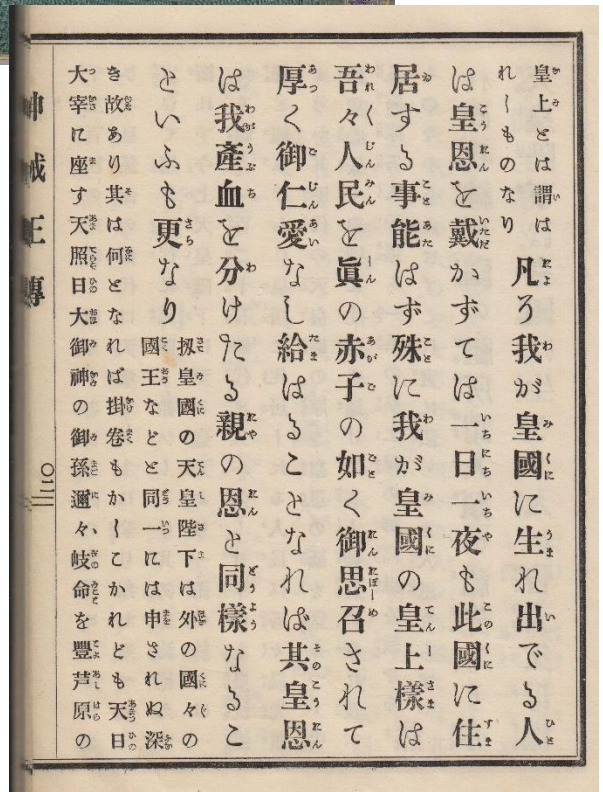 皇上とは謂は
れしものなり
凡ろ我が皇國に生れ出でる人
は皇恩を戴かずては一日一夜も此國に住
居する事能はず殊に我が皇國の皇上樣は
吾々人民を眞の赤子の如く御思召されて
厚く御仁愛なし給はることなれば其皇恩
は我產血を分けたる親の恩と同樣なるこ
といふも更なり
扨皇國の天皇陛下は外の國々の
國王などと同一には申されぬ深
き故あり其は何となれば掛卷もかしこかれども天日
大宰に座す天照日大御神の御孫邇々岐命を豐芦原の
〇二二